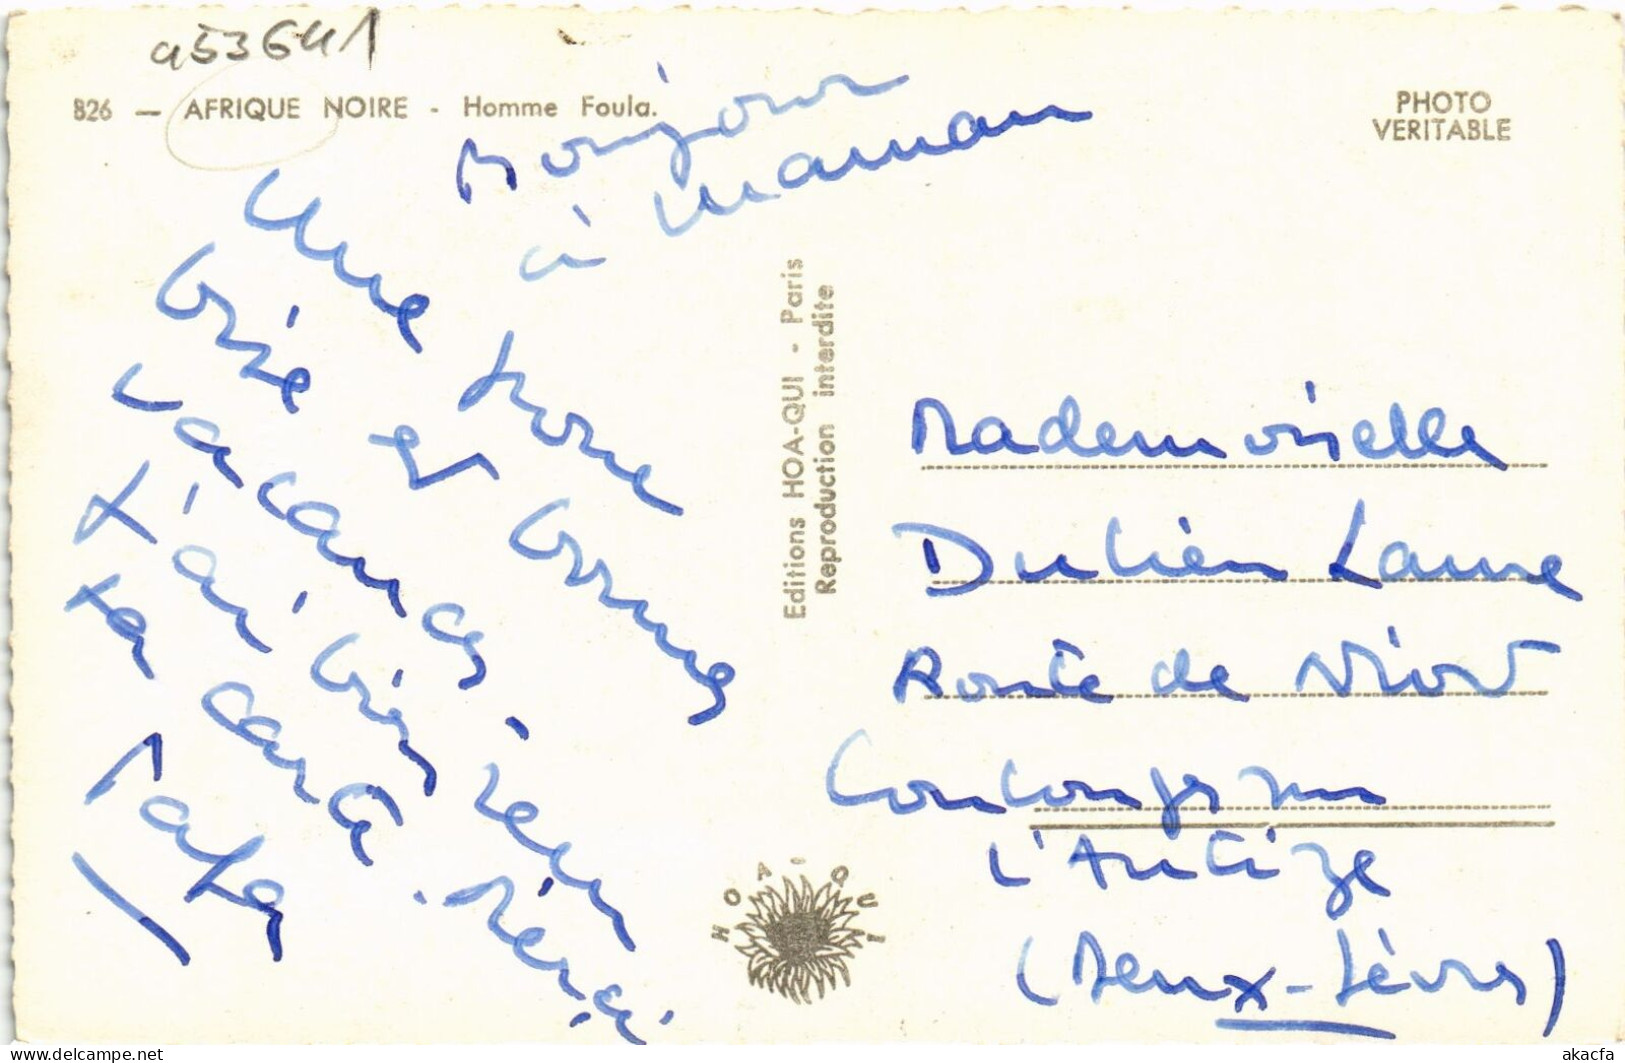 a53641
826 — AFRIQUE NOIRE - Homme Foula.
PHOTO
VERITABLE
Bonjour
à maman
Une grosse
bise et bonnes
vacances.
J'ai bien reçu
ta carte. Merci
Papa
Editions HOA-QUI - Paris
Reproduction interdite
HOA-QUI
Mademoiselle
Dulien Laure
Route de Niort
Coulonges sur
L'Autize
(Deux-Sèvres)
akacfa